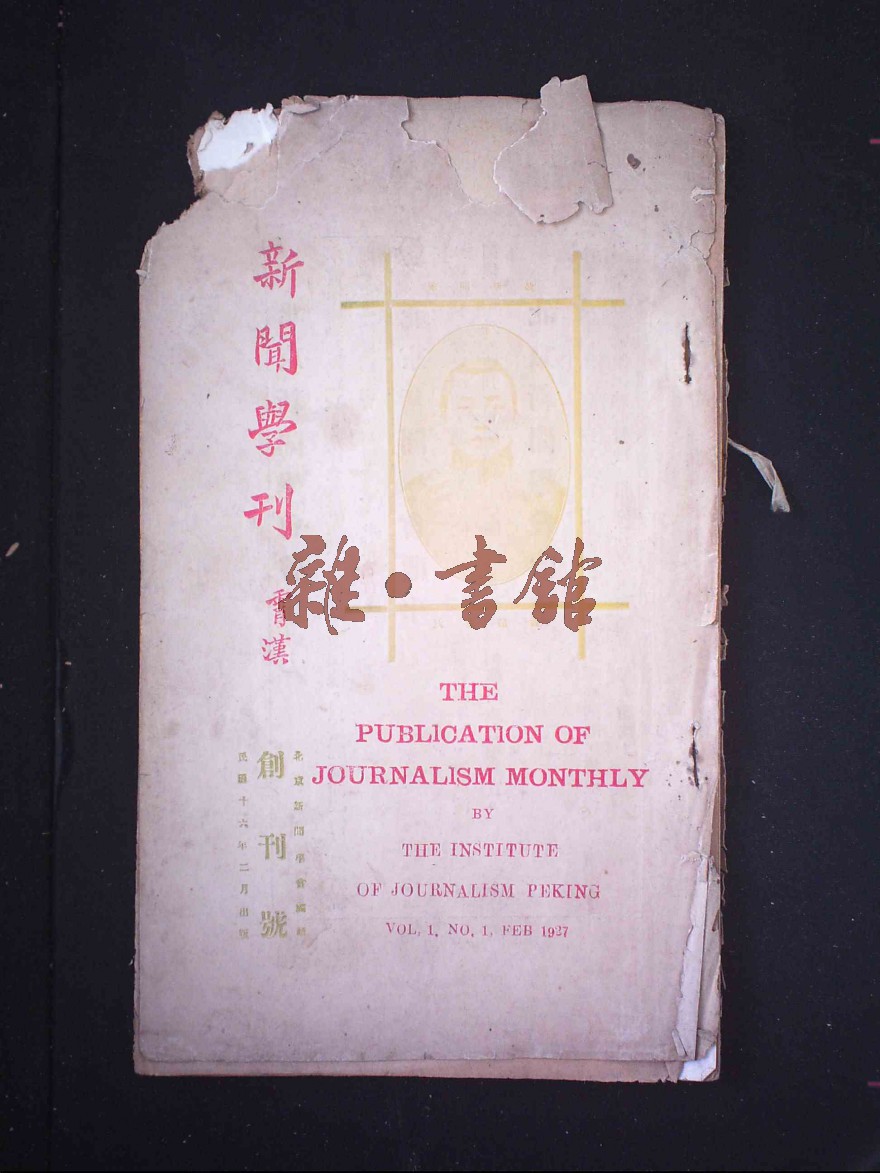 新聞學刊
胥漢
雜•書館
THE
PUBLICATION OF
JOURNALISM MONTHLY
BY
THE INSTITUTE
OF JOURNALISM PEKING
VOL, 1, NO, 1, FEB 1927
北京新聞學會編輯
創刊號
民國十六年二月出版